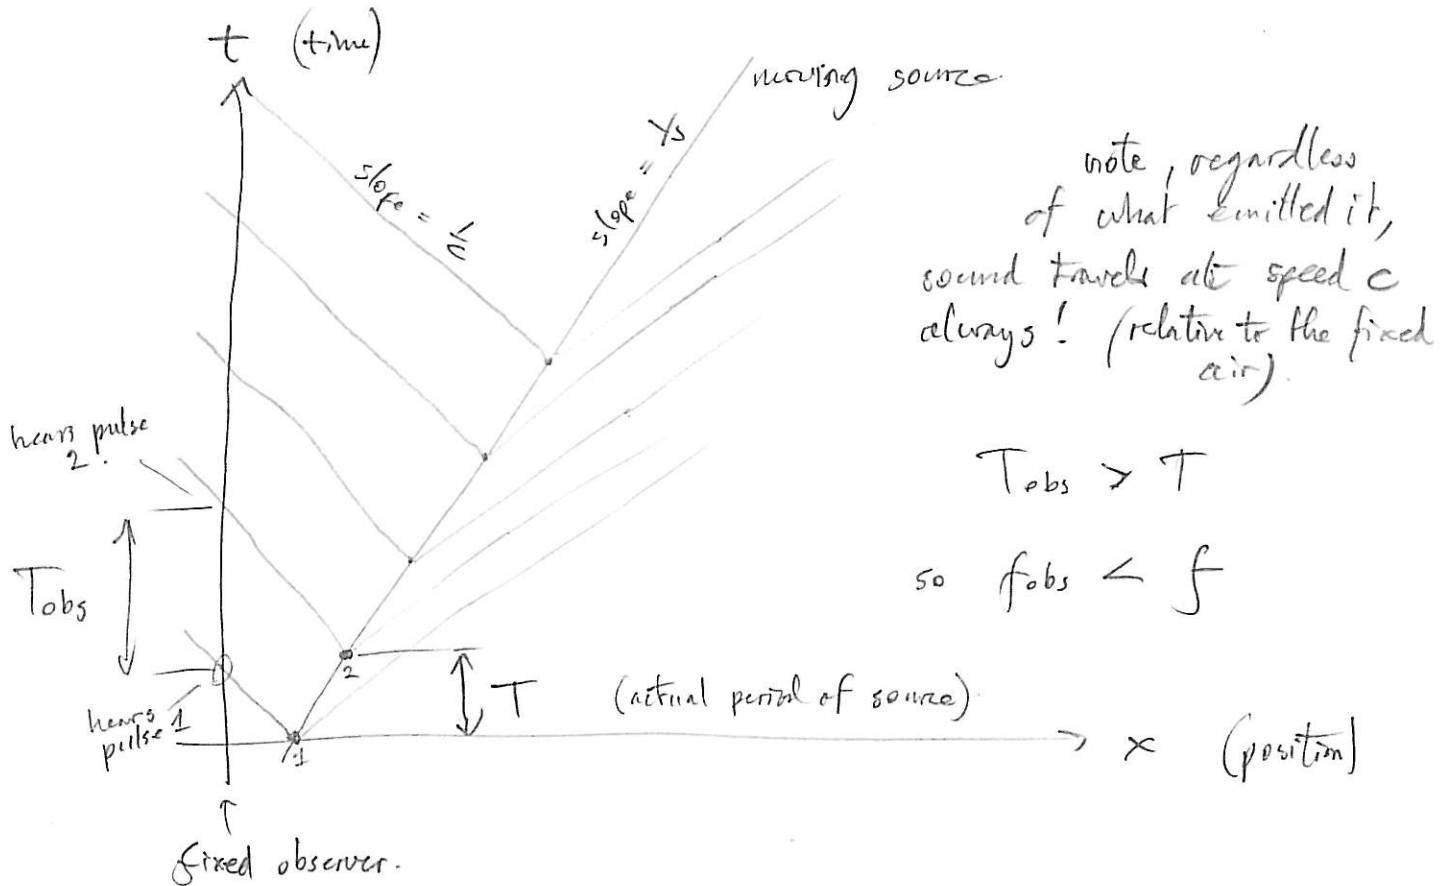 t (time)
moving source
slope = 1/c
slope = 1/s
note, regardless
of what emitted it,
sound travels at speed c
always! (relative to the fixed
air).
hears pulse
2.
Tobs > T
Tobs
so fobs < f
2
T (actual period of source)
hears
pulse 1
1
x (position)
fixed observer.